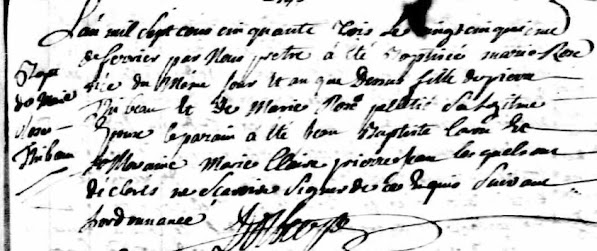 L'an mil sept cens cinquante trois le vingt cinquieme
de fevrier par Nous pretre a été Baptisée marie Rose
née du Même Jour et an que Dessus fille de pierre
Thibeau et De Marie Rose sa legitime
Epouse le parain a été Jean Baptiste et
la Maraine Marie les quels ont
declarés ne scavoir signer de ce requis suivant
l'ordonnance
Bapt
de Marie
Rose
Thibau